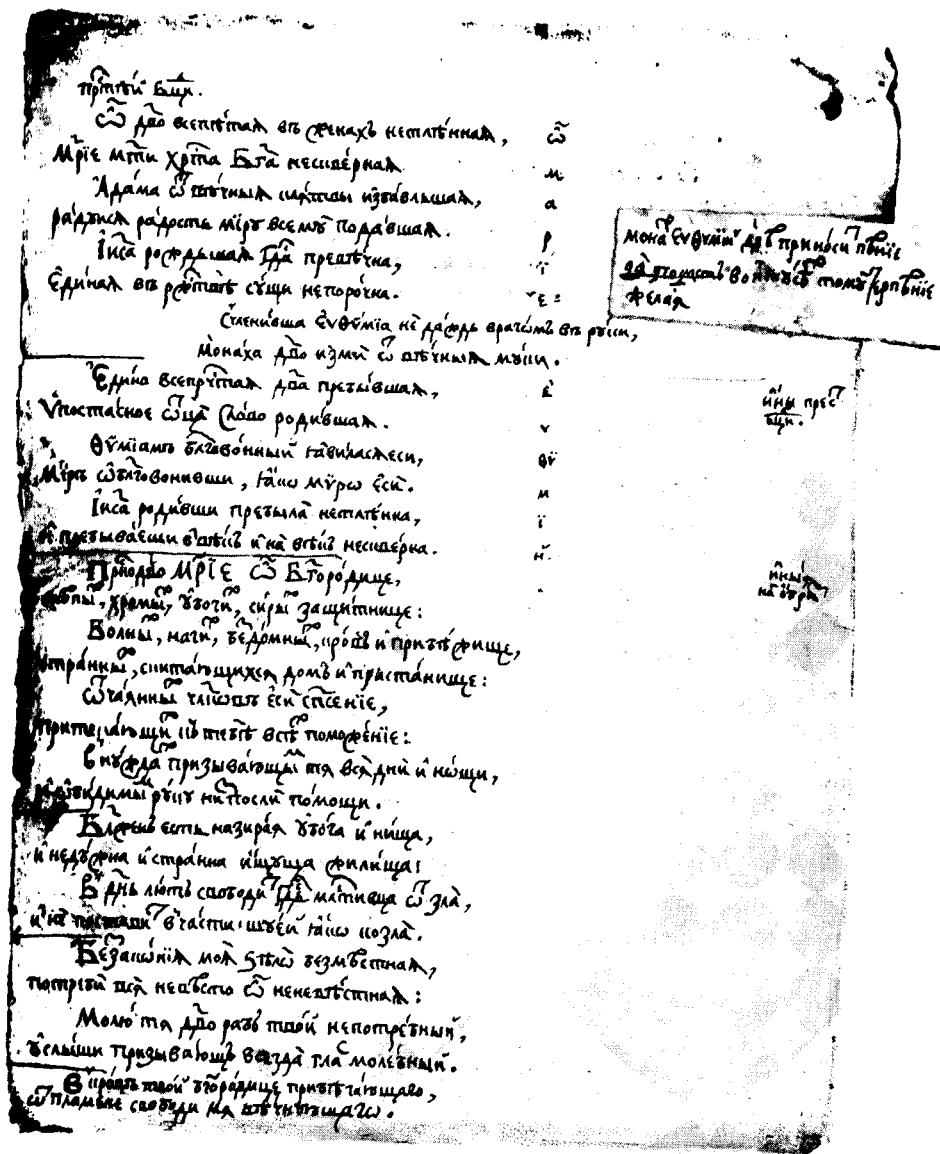 прⷭ҇тѣй бц҃ѣ.
Ѽ дв҃о всепѣтаѧ въ женахъ нетлѣннаѧ, ѽ
Мр҃їе мт҃и хрⷭ҇та бг҃а несквернаѧ м
Адама ѿ вѣчныѧ клѧтвы избавльшаѧ, а
радуйсѧ радость міру всему подавшаѧ. р
Іи҃са рождьшаѧ гд҇а превѣчна, ї
Единаѧ въ рожⷣтвѣ сущи непорочна. е
Счленивша Еѵѳѵміа не даждь врагѡмъ въ руки,
Монаха дв҃о изми ѿ вѣчныѧ муки.
Едина всепрчⷭ҇таѧ дв҃а пребывшаѧ, е
Ѵпостасное ѿц҃а слово родившаѧ. ѵ
Ѳѵміамъ блг҃овонный ꙗвиласѧ еси, ѳѵ
Міръ ѡблг҃овонивши, ꙗкѡ мѵро еси. м
Іи҃са родивши пребыла нетлѣнна, ї
И пребываеши в вѣкъ и на вѣкъ нескверна. й
Прнⷭ҇одв҃о Мр҃ІЕ ѽ Бг҃ородице,
слѣпыⷯ, хромыⷯ, убогиⷯ, сирыⷯ защитнице:
Болныⷯ, нагиⷯ, бедомныⷯ, кровъ и прибѣжище,
странныⷯ, скитающихсѧ домъ и пристанище:
Ѿчаѧнныⷯ члк҃ѡвъ еси сп҃сеніе,
притекающиⷨ къ тебѣ всѣⷨ поможеніе:
В нуждаⷯ призывающыⷨ тѧ всѧ дни и нощи,
Бл҃женъ есть назираѧ убога и нища,
и недужна и странна ищуща жилища:
В днь лютъ свободиⷮ гд҇ь млⷭ҇тивца ѿ зла,
и не поставиⷮ в части шуей ꙗкѡ козла.
Беззакѡніѧ моѧ ѕѣлѡ безмѣстнаѧ,
потреби всѧ невѣсто ѽ неневѣстнаѧ:
Молю тѧ дв҃о рабъ твой непотребный,
услыши призывающъ всегда глаⷭ молебный.
В кровъ твой бг҃ородице прибѣгающаго,
ѿ пламене свободи мѧ вѣчнующагѡ.
монаⷯ Еѵѳѵмій дв҃ѣ приноситⷮ пѣніе
желаѧ
ины прес
бц҃ѣ.
ины